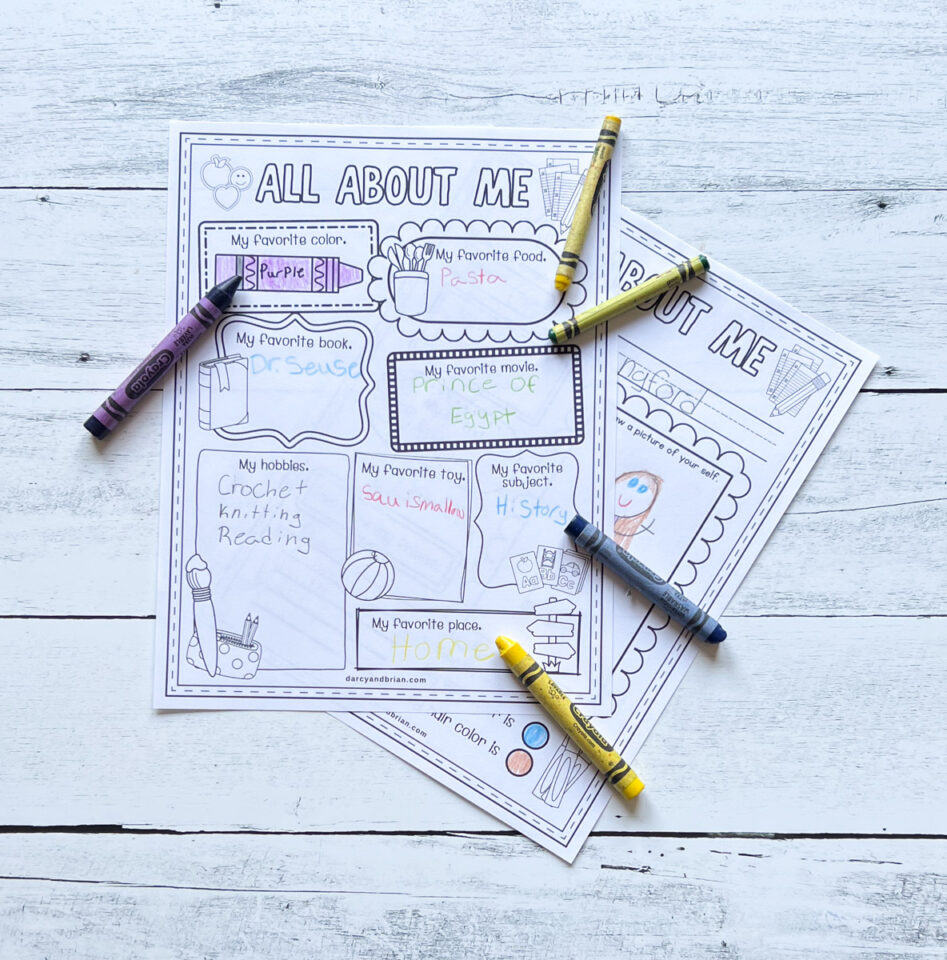 ALL ABOUT ME
My favorite color.
Purple
My favorite food.
Pasta
My favorite book.
Dr. Seuse
My favorite movie.
Prince of
Egypt
My hobbies.
Crochet
Knitting
Reading
My favorite toy.
Squismallow
My favorite
subject.
History
Aa
Bb
Cc
My favorite place.
Home
darcyandbrian.com
ABOUT ME
ngford
a picture of your self.
is
color is
Crayola
Crayola